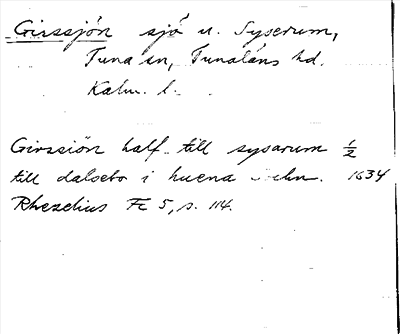 Girssjön sjö u. Syserum,
Tuna sn, Tunaläns hd.
Kalm. l.
Girssiön half till sysarum 1/2
till dalsebo i huena 1634
Rhezelius Fc 5, s. 114.